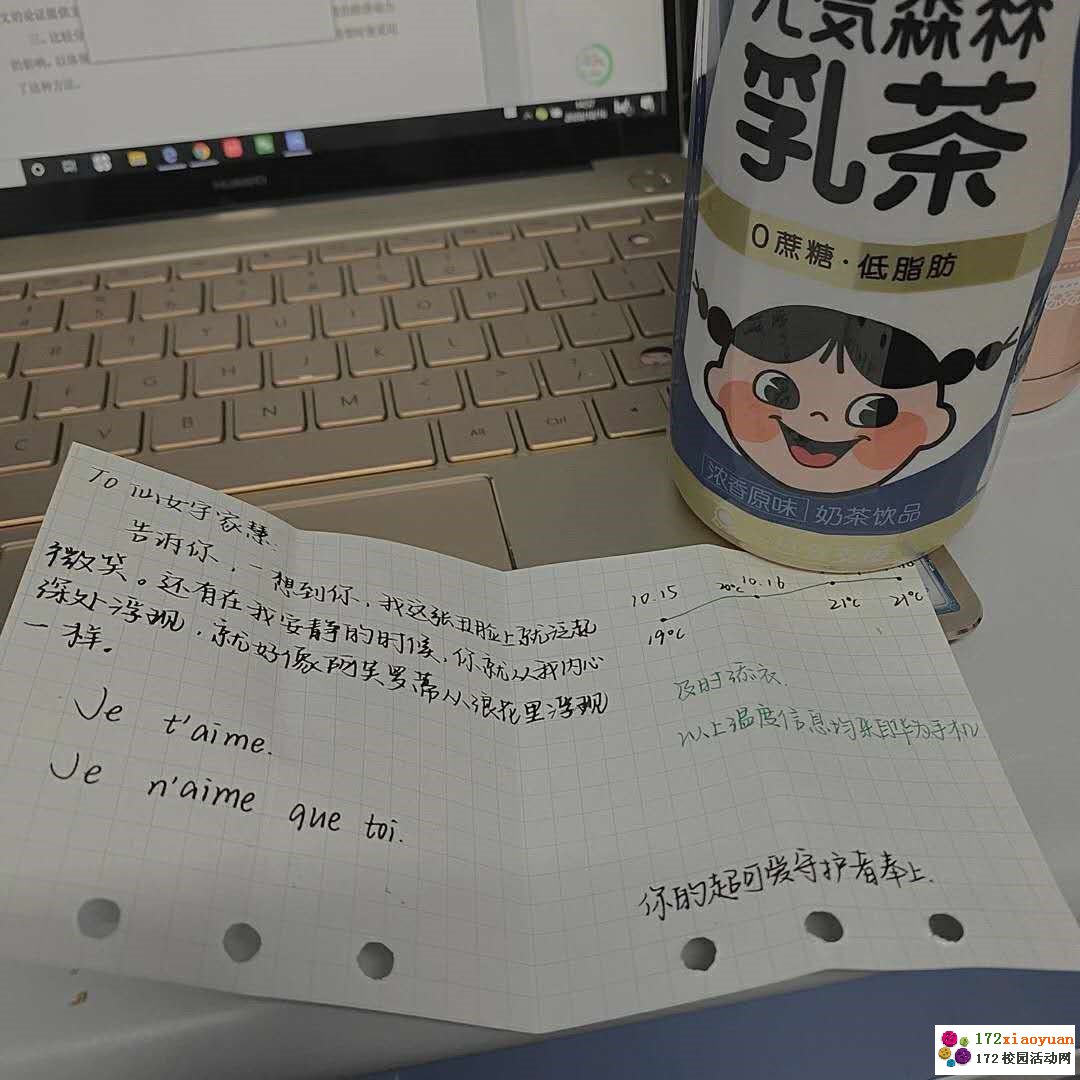 三、比较分
的影响，以体现
了这种方法。
HUAWEI
元気森林
乳茶
0蔗糖·低脂肪
浓香原味 奶茶饮品
To 仙女字家慧.
告诉你，一想到你，我这张丑脸上就泛起
微笑。还有在我安静的时候，你就从我内心
深处浮现，就好像阿芙罗蒂从浪花里浮现
一样。
Je t'aime.
Je n'aime que toi.
10.15
20℃ 10.16
19℃
21℃
21℃
及时添衣.
以上温度信息均来自华为手机
你的超可爱守护者奉上.
172xiaoyuan
172校园活动网